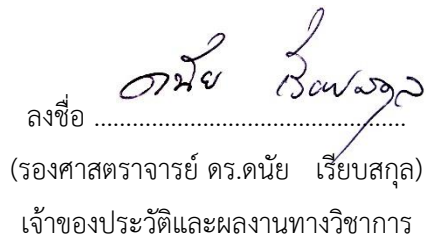 ดนัย เรียบสกุล
ลงชื่อ .................................................
(รองศาสตราจารย์ ดร.ดนัย เรียบสกุล)
เจ้าของประวัติและผลงานทางวิชาการ